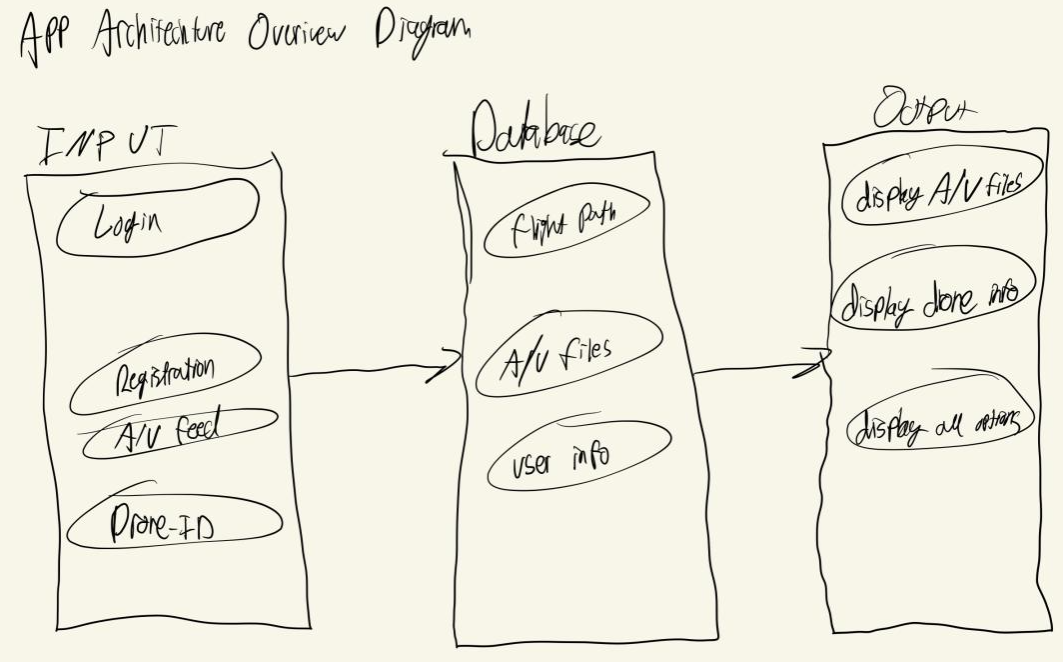 App Architechture Overview Diagram
INPUT
Login
Registration
A/V feed
Drone-ID
Database
flight path
A/V files
user info
Output
display A/V files
display drone info
display all options